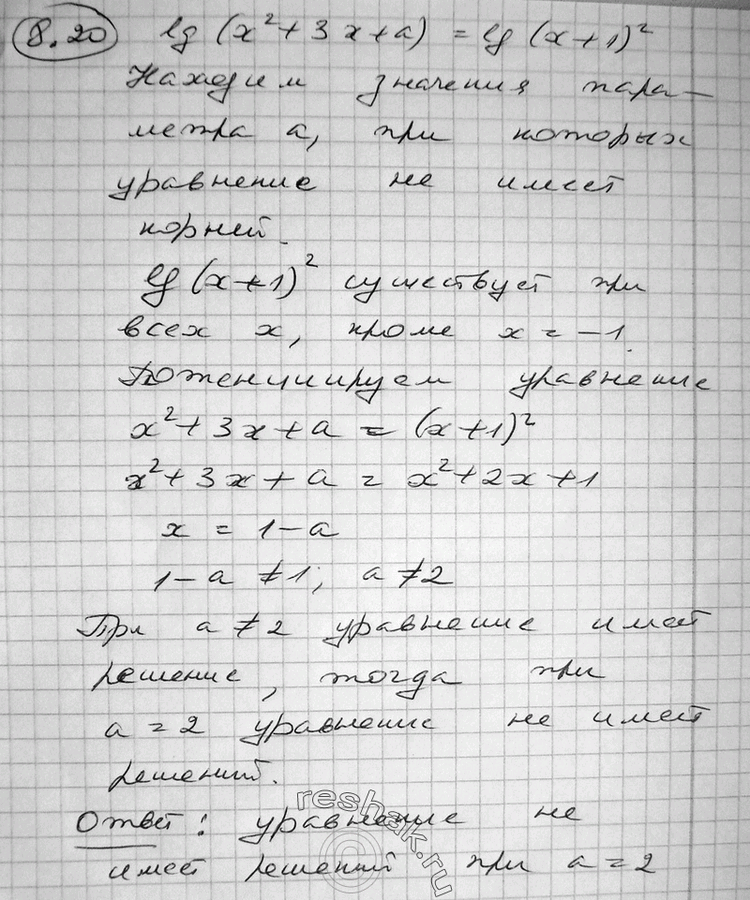 8.20 lg (x²+3x+a) = lg (x+1)²
Находим значения пара-
метра a, при которых
уравнение не имеет
корней.
lg (x+1)² существует при
всех x, кроме x = -1.
Потенцируем уравнение
x²+3x+a = (x+1)²
x²+3x+a = x²+2x+1
x = 1-a
1-a ≠1; a ≠2
При a ≠ 2 уравнение имеет
решение, тогда при
a = 2 уравнение не имеет
решений.
Ответ: уравнение не
имеет решений при a = 2
reshak.ru